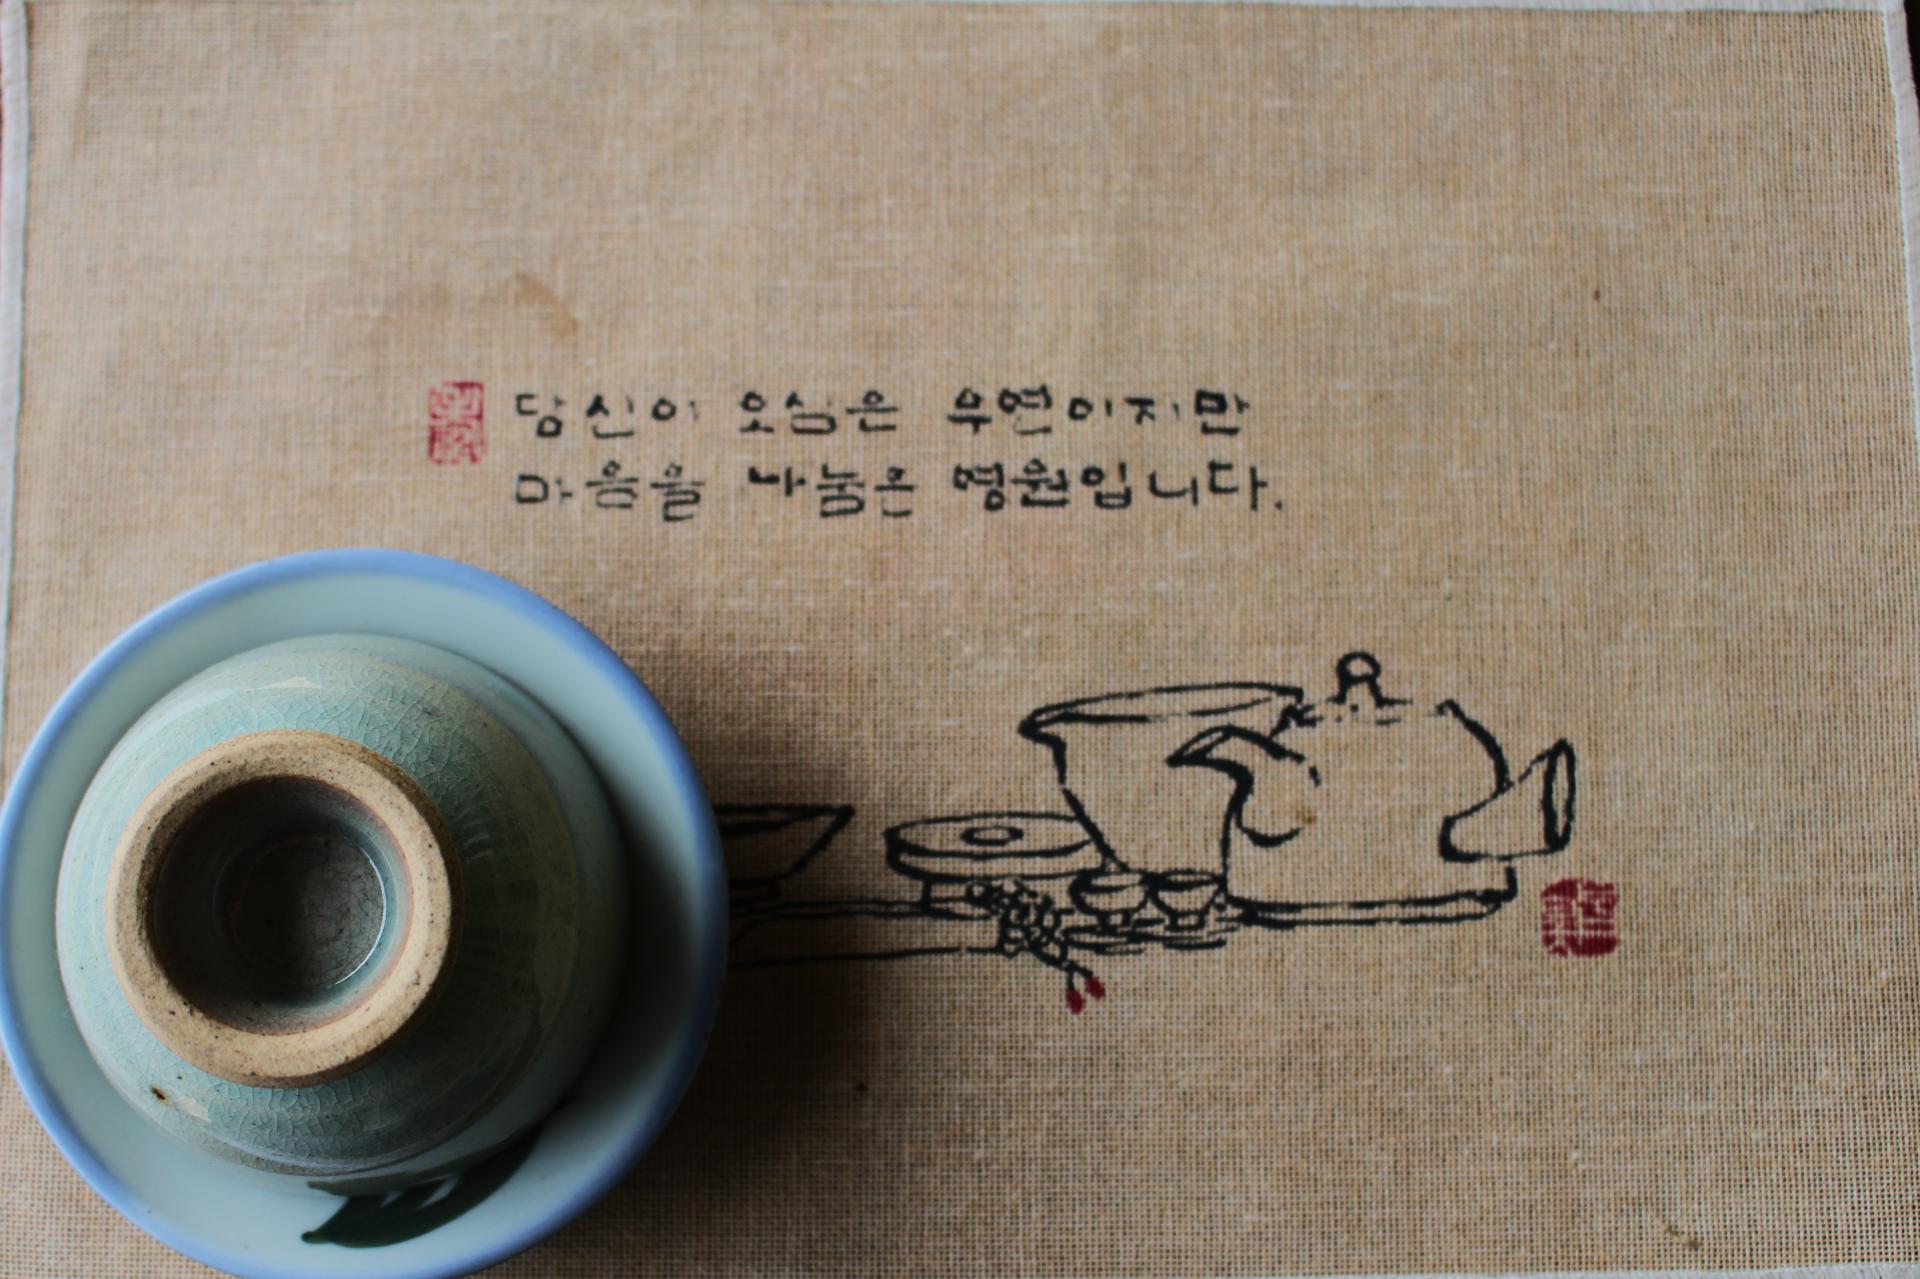 당신이 오심은 우연이지만
마음을 나눔은 영원입니다.